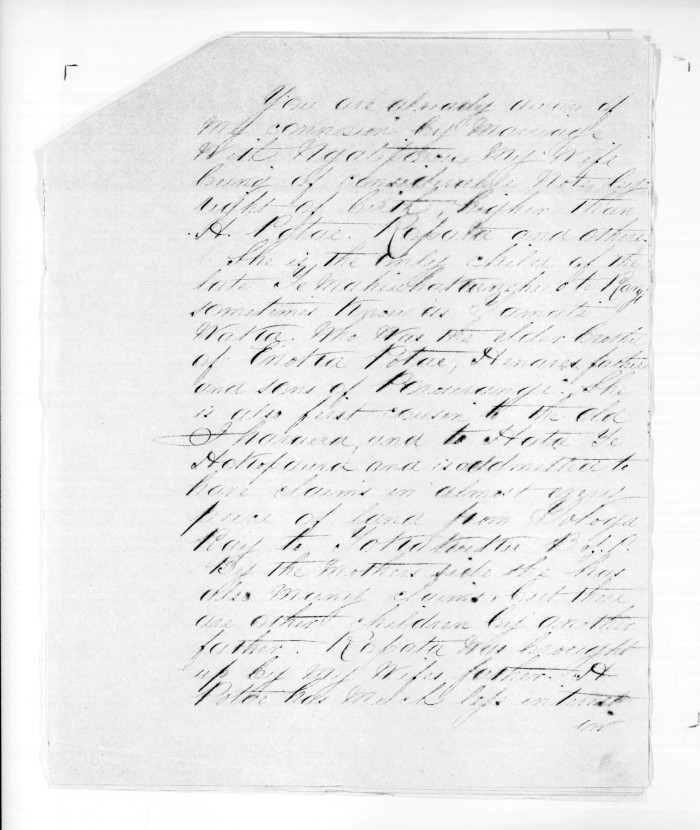 You are already aware of
my connexion by Marriage
With Ngatiporou, My Wife
being of considerable Note by
right of birth, higher than
H. Potae. Ropata and others.
She is, the only child of the
late Te Makiwhat o te Rangi
sometimes Know as Tamati
Waka. Who Was the elder brother
of Enoka Potae, Henares father
and sons of She
is also first cousin to the old
Tharaira, and to Hata Te
and is addmetted to
have claims in almost every
piece of land from Tologa
Bay to
By the Mothers side she has
also many claims, but there
are other children by another
father. Ropata Was brought
up by my Wifes father. H
Potae has Much less intrest
in